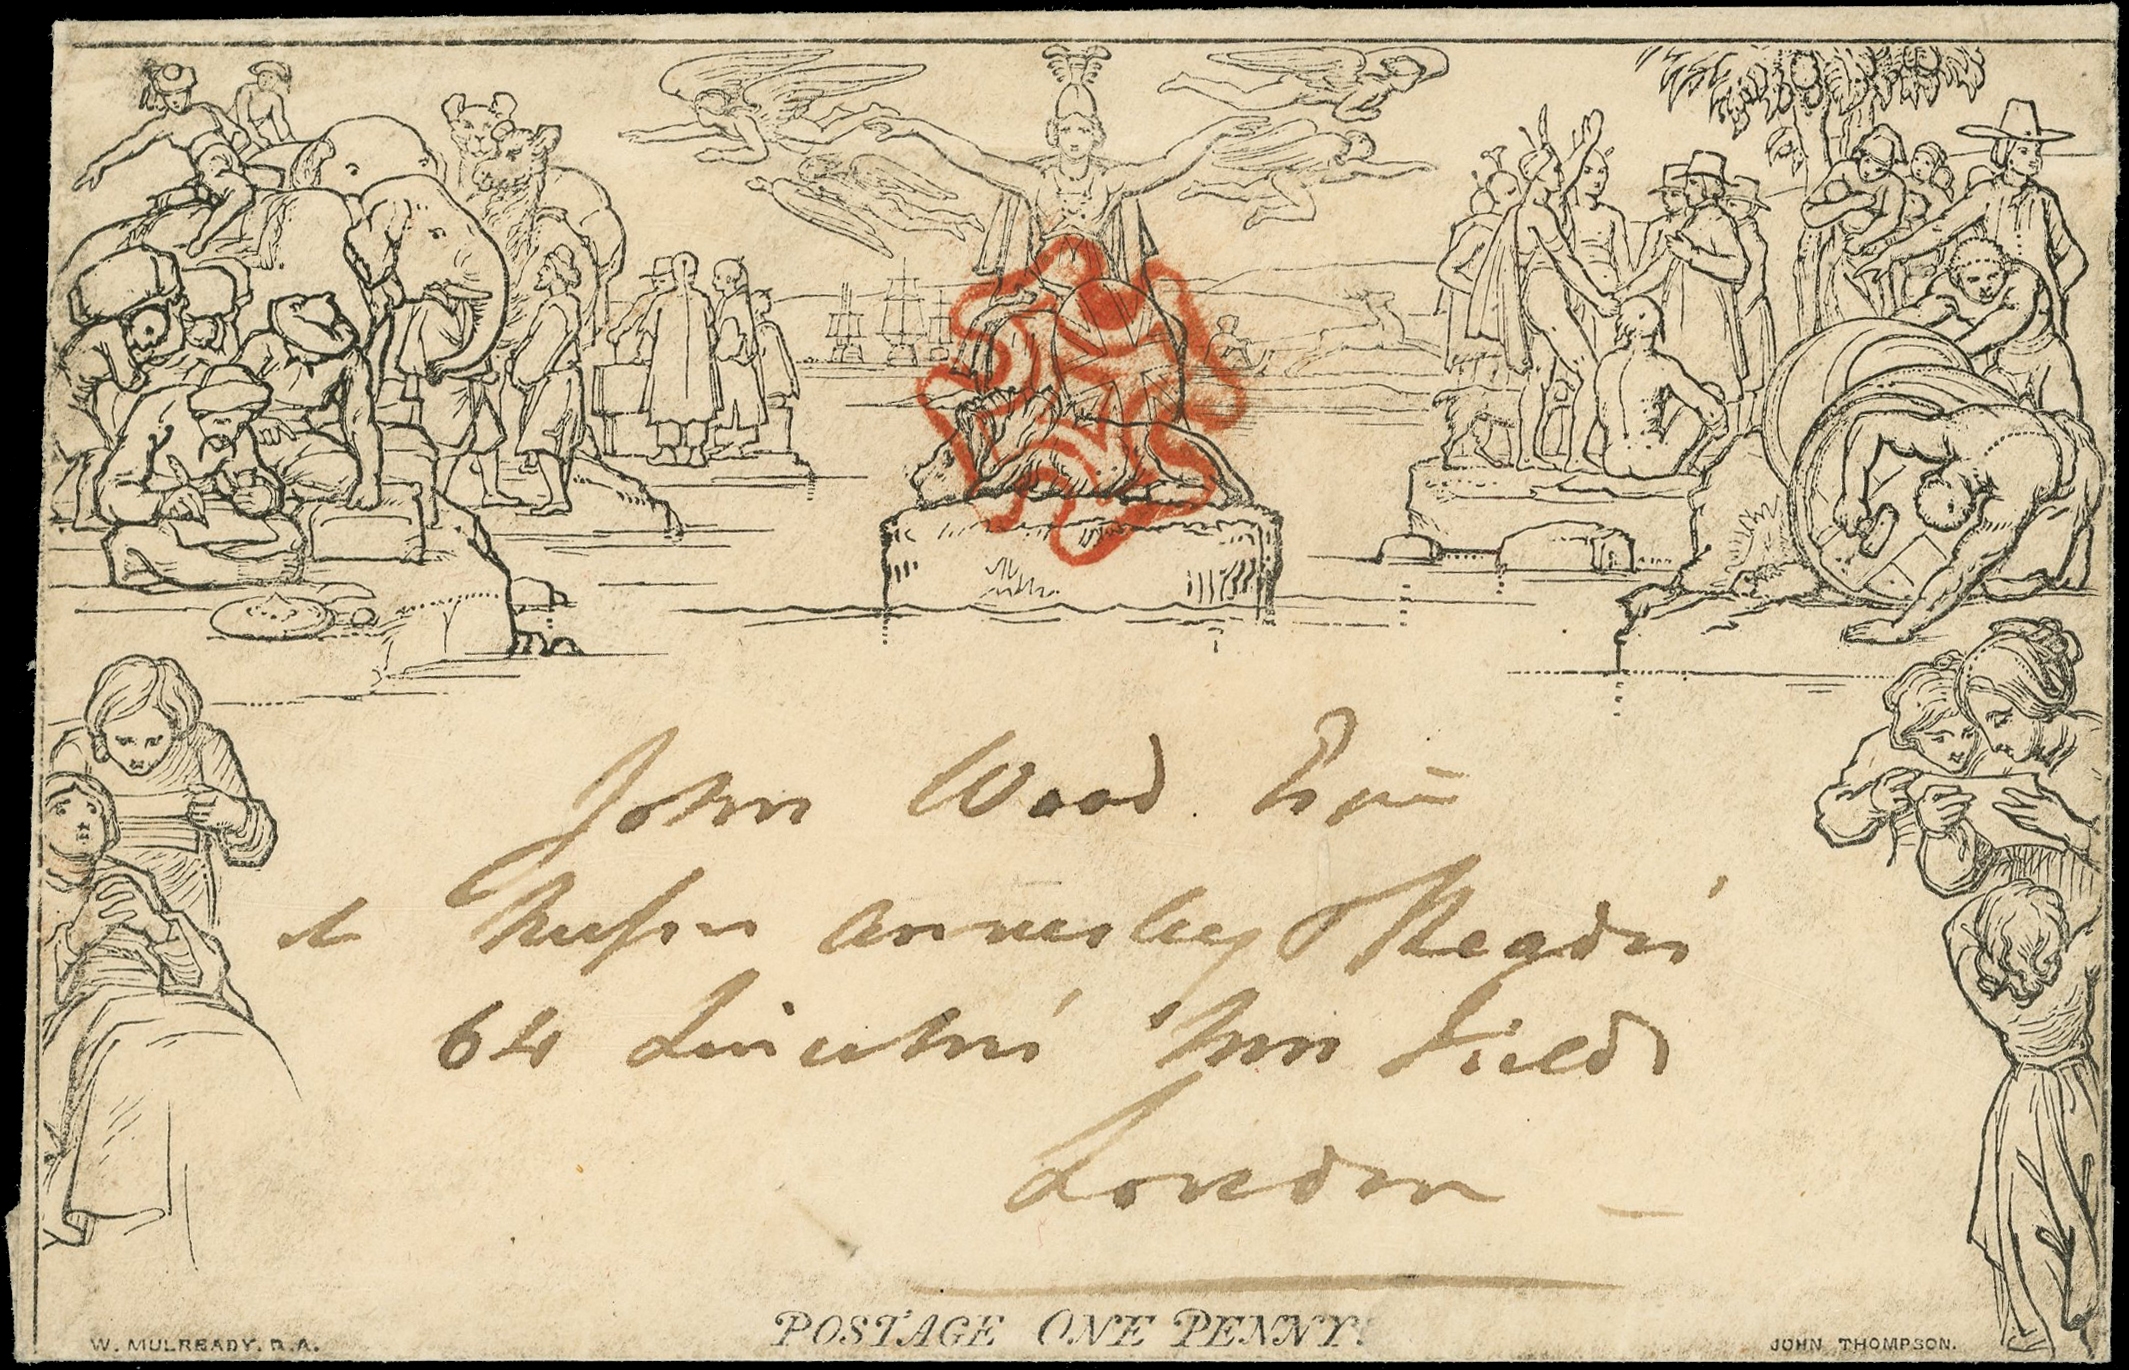 John Wood Esqr
at Messrs Annesley & Reads
64 Lincolns Inn Fields
London
POSTAGE ONE PENNY.
W. MULREADY. R.A.
JOHN THOMPSON.